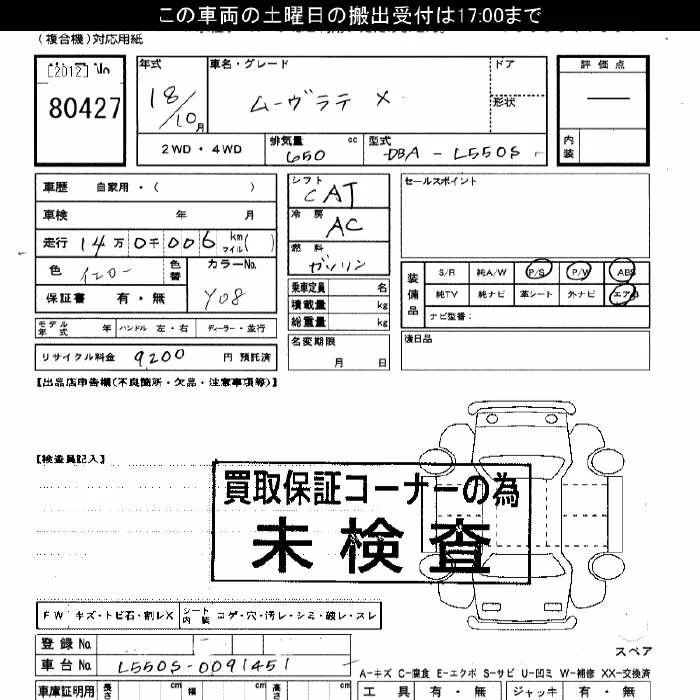 この車両の土曜日の搬出受付は17:00まで
(複合機)対応用紙
[2012] No
80427
年式
18/10月
車名・グレード
ムーヴラテ X
ドア
形状
評価点
内装
2WD・4WD
排気量 650 cc
型式 DBA-L550S
車歴 自家用・( )
車検 年 月
走行 14万0千006 km マイル( )
色 イエロー
色替
カラーNo. Y08
保証書 有・無
シフト CAT
冷房 AC
燃料 ガソリン
乗車定員 名
積載量 kg
総重量 kg
名変期限
月 日
セールスポイント
装備品
S/R 純A/W P/S P/W ABS
純TV 純ナビ 革シート 外ナビ エアB
ナビ型番:
後日品
モデル年式 年 ハンドル 左・右 ディーラー・並行
リサイクル料金 9200 円 預託済
【出品店申告欄(不良箇所・欠品・注意事項等)】
【検査員記入】
買取保証コーナーの為
未検査
FW キズ・トビ石・割レX
シート内装 コゲ・穴・汚レ・シミ・破レ・スレ
登録No.
車台No. L550S-0091451
スペア
A-キズ C-腐食 E-エクボ S-サビ U-凹ミ W-補修 XX-交換済
車庫証明用 長さ cm 幅 cm 高さ cm
工具 有・無 ジャッキ 有・無